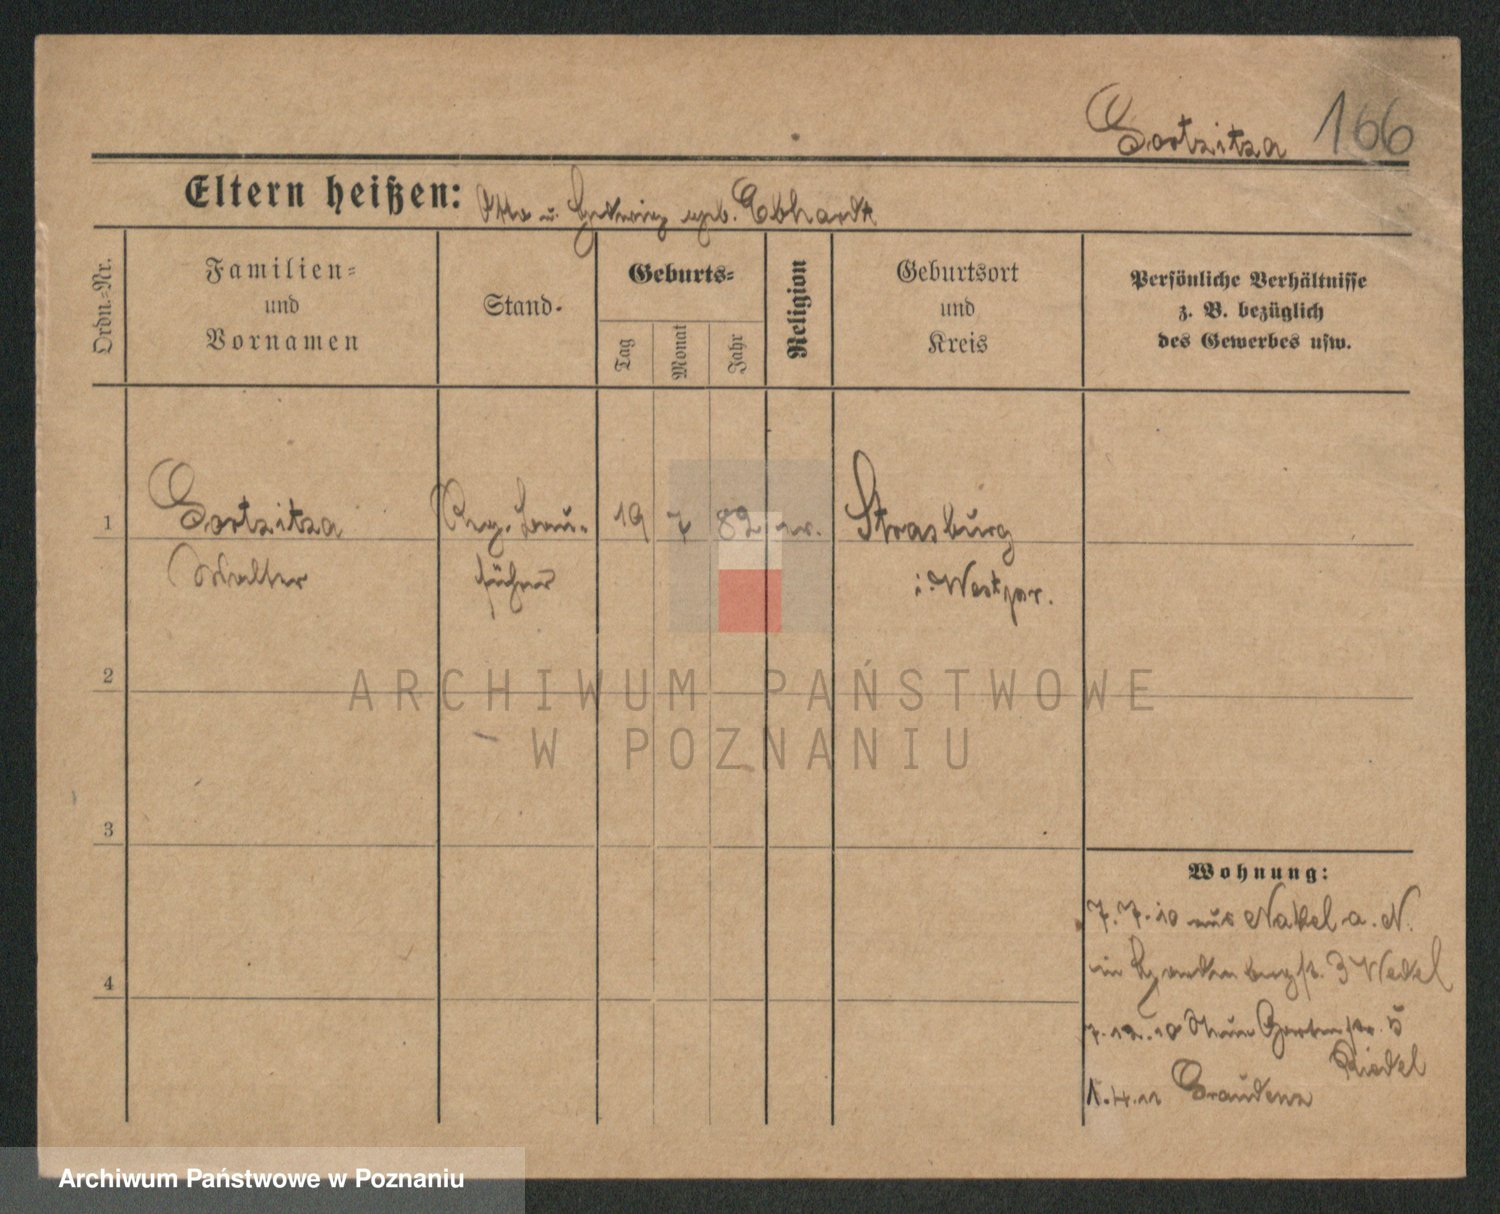 Gortzitza 166
Eltern heißen: Otto u. Hedwig geb. Ebhardt
Ordn.=Nr.
Familien=
und
Vornamen
Stand.
Geburts=
Tag
Monat
Jahr
Religion
Geburtsort
und
Kreis
Persönliche Verhältnisse
z. B. bezüglich
des Gewerbes usw.
1 Gortzitza Reg. Bau- 19 7 82 Strasburg
Walter führer i. Westpr.
2
3
4
Wohnung:
7.7.10 aus Nakel a. N.
in 3 Wedel
7.12.10 Gartenstr. 5
Riedel
1.4.11 Graudenz
ARCHIWUM PAŃSTWOWE
W POZNANIU
Archiwum Państwowe w Poznaniu